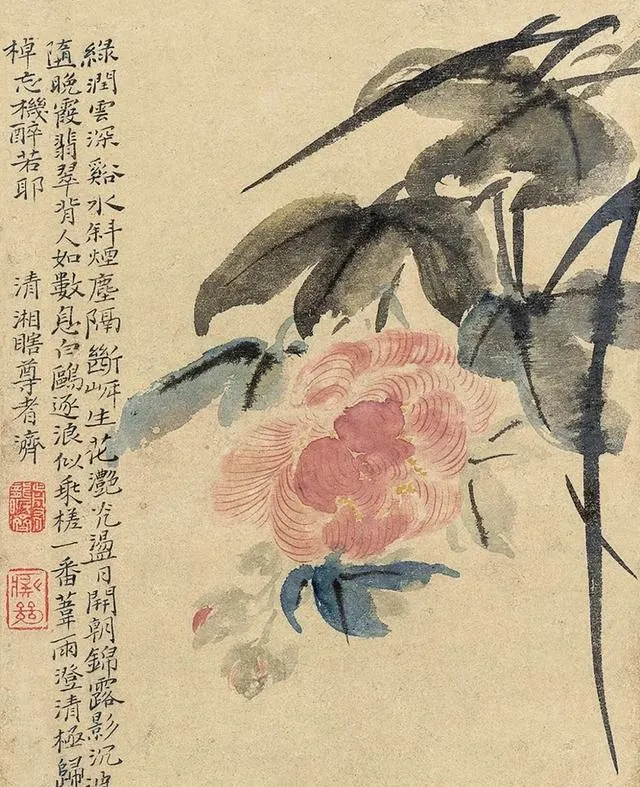 綠潤雲深谿水斜煙塵隔斷岸生花灧光盪日開朝錦露影沉波
隨晚霞翡翠背人如數息白鷗逐浪似乘槎一番葦雨澄清極歸
棹忘機醉若耶
清湘瞎尊者濟